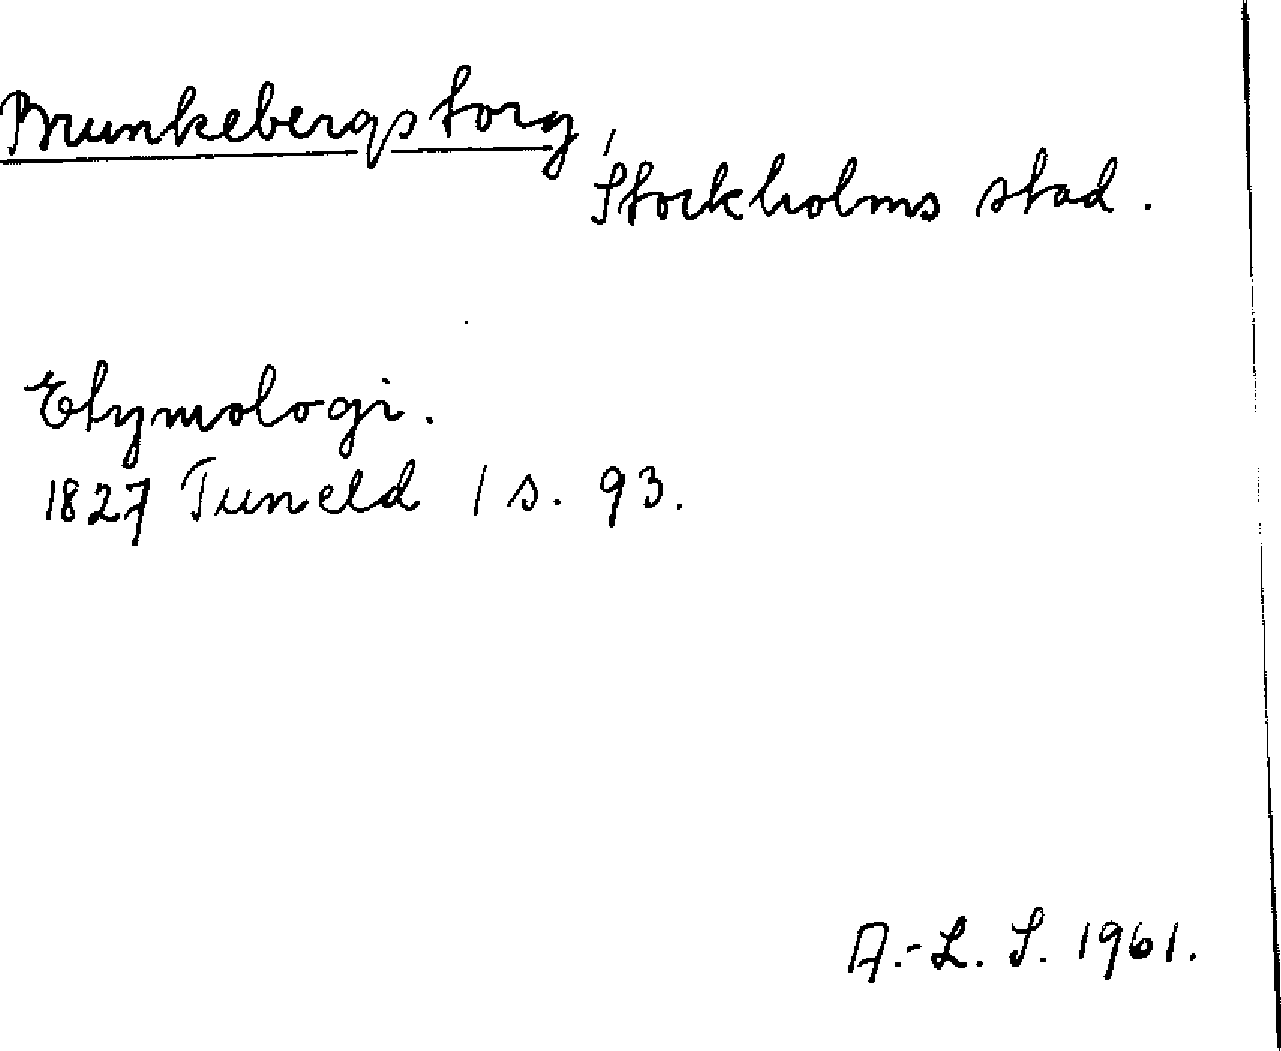 Brunkebergstorg,
Stockholms stad.
Etymologi.
1827 Tuneld 1 s. 93.
A.-L. S. 1961.